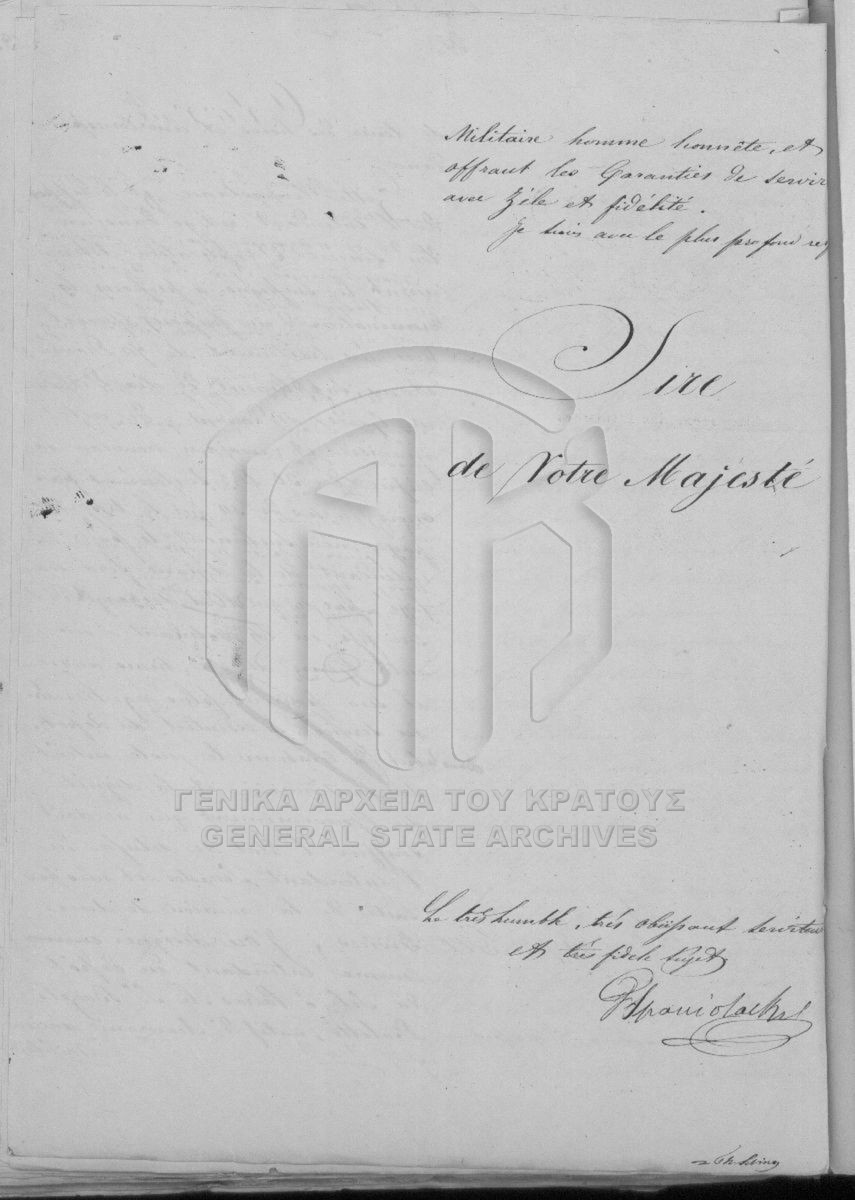 Militaire homme honnête, et
offrant les Garanties de servir
avec Zèle et fidélité.
Je suis avec le plus profond res
Sire
de Votre Majesté
ΓΕΝΙΚΑ ΑΡΧΕΙΑ ΤΟΥ ΚΡΑΤΟΥΣ
GENERAL STATE ARCHIVES
Le très humble, très obéissant serviteur
et très fidele sujet
Spaniolacki